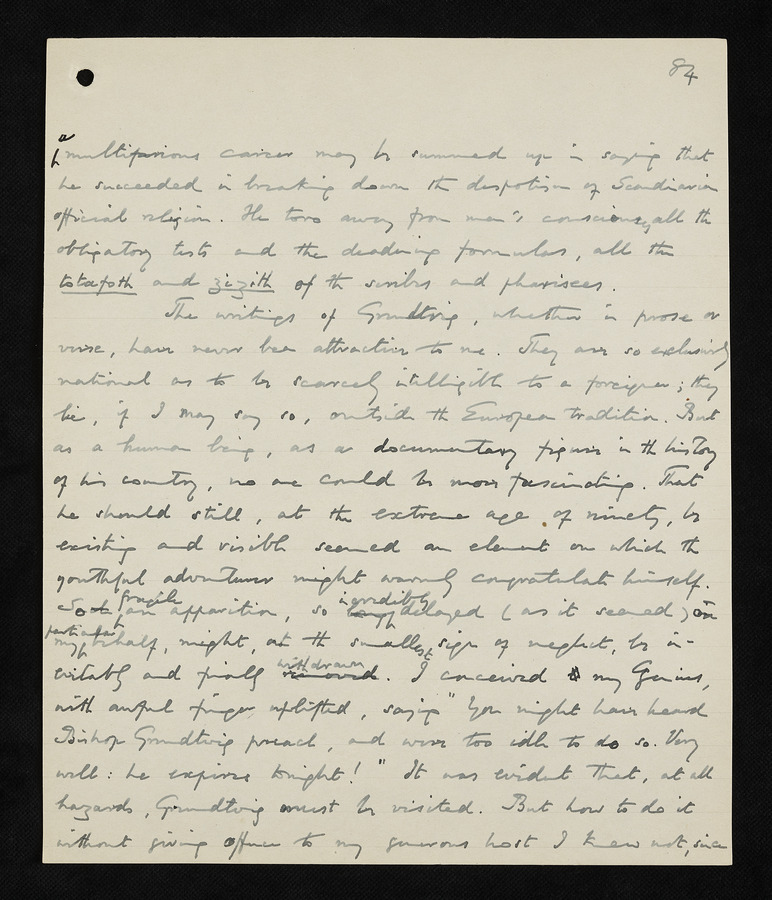 84
a multifarious career may be summed up in saying that
he succeeded in breaking down the despotism of Scandinavian
official religion. He tore away from men's consciences all the
obligatory tests and the deadening formulas, all the
totafoth and zizith of the scribes and pharisees.
The writings of Grundtvig, whether in prose or
verse, have never been attractive to me. They are so exclusively
national as to be scarcely intelligible to a foreigner; they
lie, if I may say so, outside the European tradition. But
as a human being, as a documentary figure in the history
of his country, no one could be more fascinating. That
he should still, at the extreme age of ninety, be
existing and visible seemed an element on which the
youthful adventurer might warmly congratulate himself.
fragile incredibly
So an apparition, so delayed (as it seemed) on
my behalf, might, at the smallest sign of neglect, be in-
withdrawn
evitably and finally removed. I conceived my Genius,
with awful finger uplifted, saying "You might have heard
Bishop Grundtvig preach, and were too idle to do so. Very
well: he expires tonight!" It was evident that, at all
hazards, Grundtvig must be visited. But how to do it
without giving offence to my generous host I knew not, since